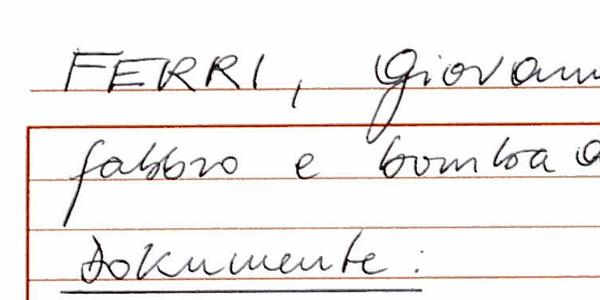 FERRI, Giovann
fabbro e bomba
Dokumente: